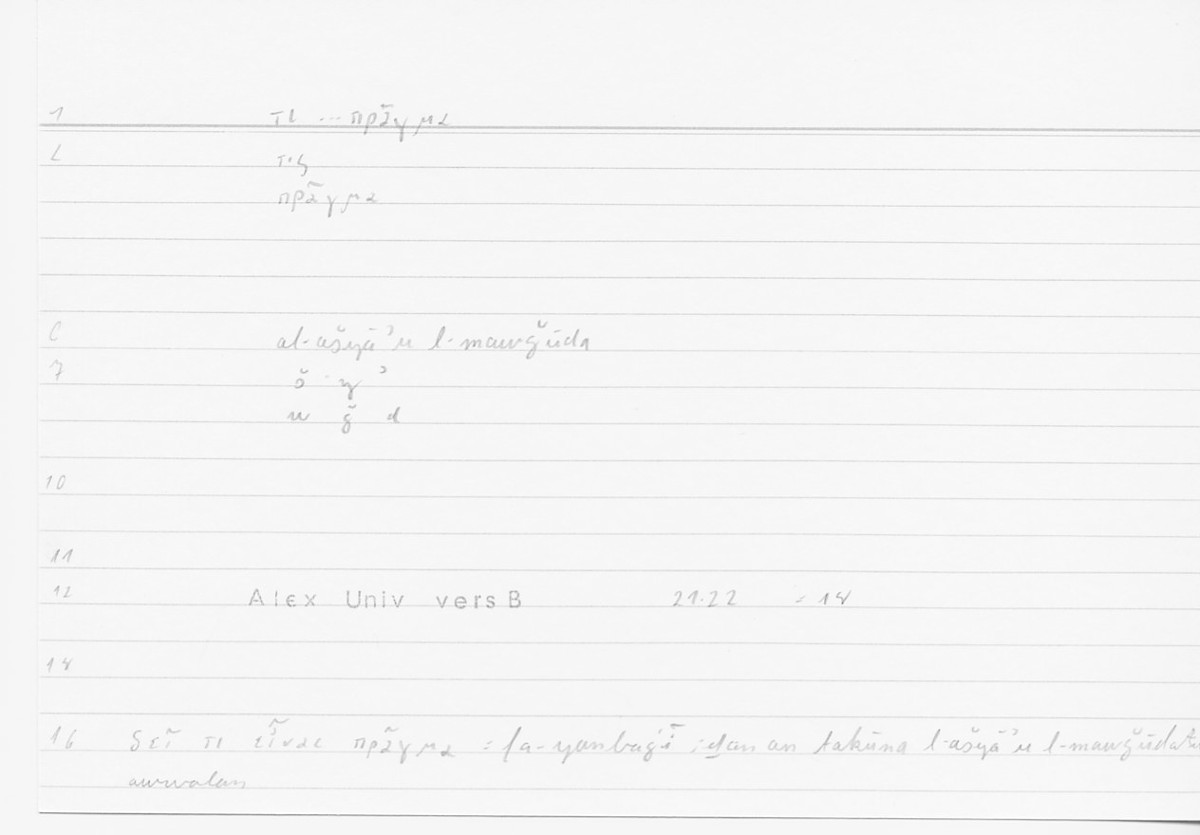 1 τι ... πρᾶγμα
2 τις
πρᾶγμα
6 al-ašyāʾu l-mawǧūda
7 š y ʾ
w ǧ d
10
11
12 Alex Univ vers B 21.22 = 18
14
16 δεῖ τι εἶναι πρᾶγμα = fa-yanbaġī iḏan an takūna l-ašyāʾu l-mawǧūdatu
awwalan